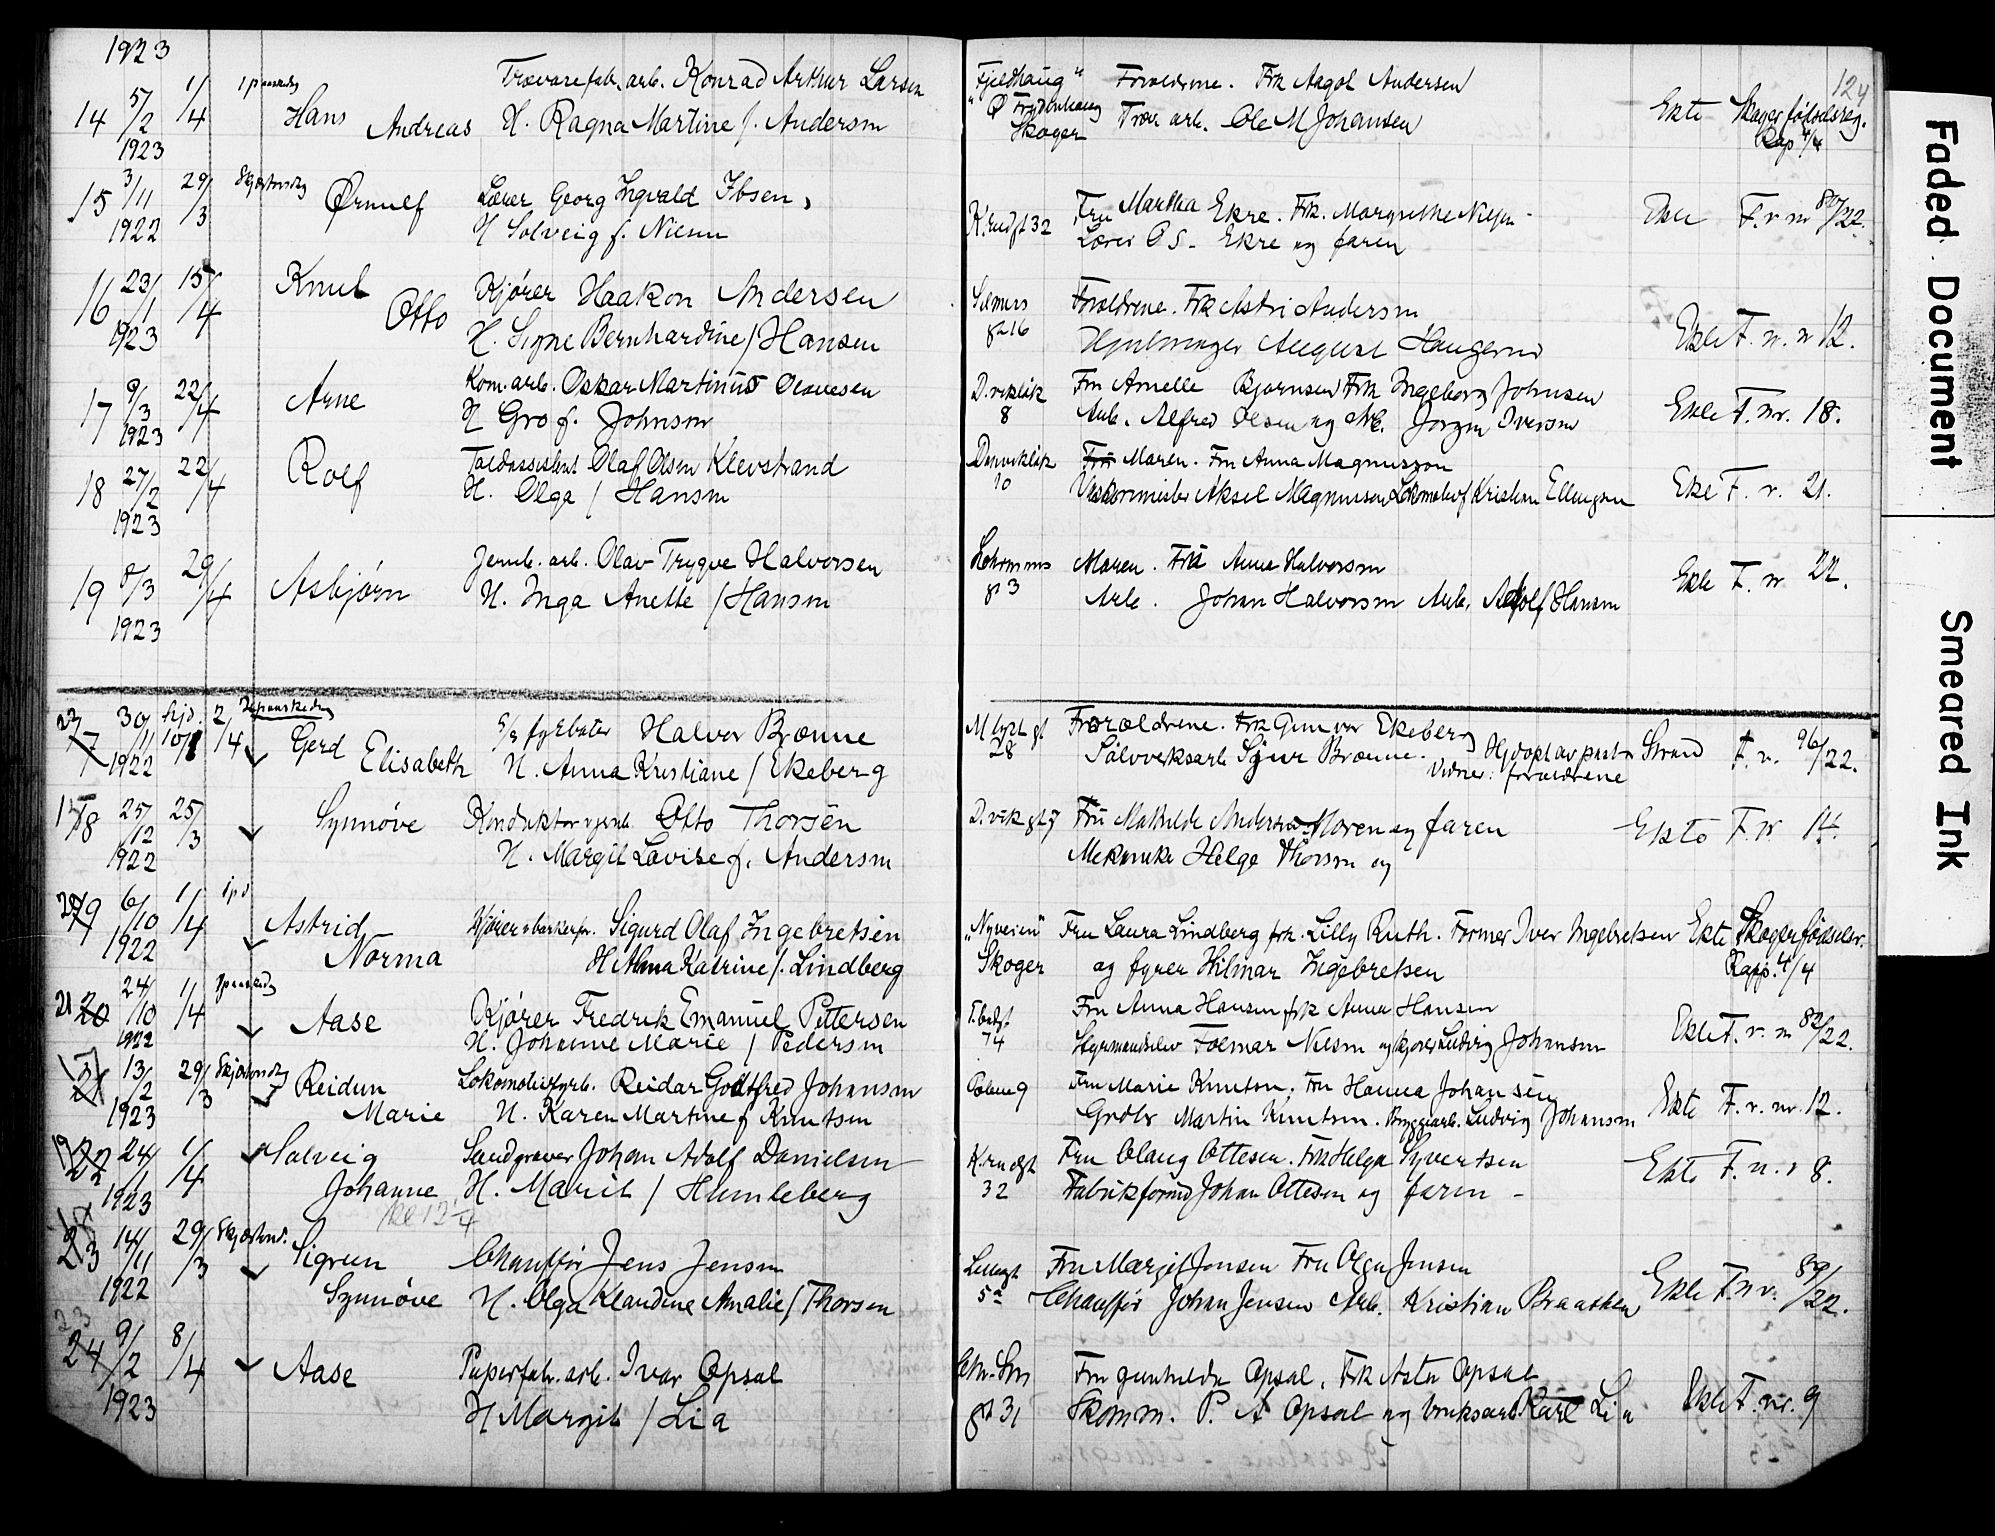 1923
124
14 5/2 1923 1/4
Hans Andreas
Trævarefabr. arb. Konrad Arthur Larsen
H. Ragna Martine f. Andersen
"Fjeldhaug"
Skoger
Forældrene. Frk Aagot Andersen
Træv arb. Ole M Johansen
Ekte Skoger fødselsreg.
Rap 4/4
15 3/11 1922 29/3 Skjærtorsdag
Ørnulf
Lærer Georg Ingvald Ibsen,
H Solveig f. Nielsen
32
Fru Martha Ekre. Frk. Margrethe Nielsen
Lærer O S. Ekre og faren
Ekte F. v nr 80/22.
16 23/1 1923 15/4
Knut Otto
Kjører Haakon Andersen
H. Signe Bernhardine f Hansen
gt 16
Forældrene. Frk Astri Andersen
August Haugerud
Ekte F. v. nr 12.
17 9/3 1923 22/4
Arne
Kom. arb. Oskar Martinus Olavesen
H Gro f. Johnsen
8
Fru Arnelle Bjørnsen Frk Ingeborg Johnsen
Arb. Alfred Olsen og Arb. Jørgen Iversen
Ekte F. nr. 18.
18 27/2 1923 22/4
Rolf
Toldassistent Olaf Olsen Klevstrand
H. Olga f Hansen
10
Moren. Fru Anna Magnussen
Aksel Magnussen Lokomotivf Kristian Ellingsen
Ekte F. v. 21.
19 8/3 1923 29/4
Asbjørn
Jernb. arb. Olav Trygve Halvorsen
H. Inga Anette f Hansen
gt 3
Moren. Frk Anna Halvorsen
Arb. Johan Halvorsen Arb. Adolf Hansen
Ekte F. nr. 22.
17 30/11 1922 hjd. 10/1 2/4 2 paaskedag
Gerd Elisabeth
fyrbøter Halvor Brænne
H. Anna Kristiane f Ekeberg
28
Forældrene. Frk Gunvor Ekeberg
Sølvverksarb Sjur Brænne. Hjdøpt av pastor Strand
Vidner: forældrene
F. v. 96/22.
18 25/12 1922 25/3
Synnøve
Konduktør v jernb. Otto Thorsen
H. Margit Lovise f. Andersen
D. vik gt 7
Fru Mathilde Andersen Moren og faren
Mekanike Helge Thorsen og
Ekte F. nr 14.
19 6/10 1922 1/4 1 p d
Astrid Norma
Kjører v bankerfor. Sigurd Olaf Ingebretsen
H Alma Katrine f. Lindberg
"Nyveien"
Skoger
Fru Laura Lindberg frk. Lilly Ruth. Former Iver Ingebretsen
og fyrer Hilmar Ingebretsen
Ekte Skoger fødselsr.
Rapp. 4/4
21 20 24/10 1922 1/4 1 paaskedag
Aase
Kjører Fredrik Emanuel Pettersen
H. Johanne Marie f Pedersen
74
Fru Anna Hansen frk Anna Hansen
Styrmandselev Folmar Nilsen og kjører Ludvig Johansen
Ekte F. v. nr 82/22.
21 13/2 1923 29/3 Skjærtorsdag
Reidun Marie
Lokomotivfyrb. Reidar Godtfred Johansen
H. Karen Martine f Knutsen
9
Fru Marie Knutsen. Fru Hanna Johansen
Martin Knutsen. Byggearb. Ludvig Johansen
Ekte F. v. nr. 12.
22 24/1 1923 1/4
Solveig Johanne
Sandgraver Johan Adolf Danielsen
H. Marit f Humleberg
32
Fru Olaug Ottesen. Frk Helga Syvertsen
Fabrikformd Johan Ottesen og faren
Ekte F. n. r 8.
23 14/11 1922 29/3 Skjærtorsd.
Sigrun Synnøve
Chauffør Jens Jensen
H. Olga Klaudine Amalie f Thorsen
5a
Fru Margit Jensen Fru Olga Jensen
Chauffør Johan Jensen Arb. Kristian Braathen
Ekte F. nr. 89/22.
23
24 9/2 1923 8/4
Aase
Papirfabr. arb. Ivar Opsal
H Margit f Lia
gt 31
Fru Gunhilda Opsal. Frk Asta Opsal
Skom m. P. A Opsal og bruksarb Karl Lia
Ekte F. nr. 9
Faded Document
Smeared Ink